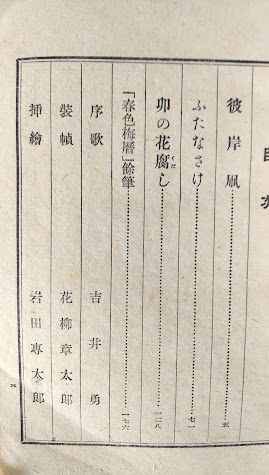 目次
彼岸凧……五
ふたなさけ……七一
卯の花腐し……一二八
くだ
「春色梅暦」餘筆……一七六
序歌 吉井勇
裝幀 花柳章太郎
挿繪 岩田專太郎
三